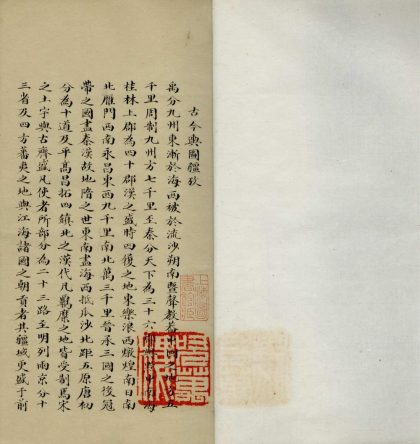 古今輿圖疆攷
禹分九州東漸於海西被於流沙朔南暨聲教
千里周制九州方七千里至秦分天下為三十六
桂林上郡為四十郡漢之盛時四復之地東樂浪西燉煌南日南
北雁門西南永昌東西九千里南北萬三千里晉承三國之後冠
帶之國盡秦漢故地隋之世東南盡海西抵瓜沙北距五原唐初
分為十道及平高昌拓四鎮北之漢代凡羈縻之地皆受制焉宋
之土宇與古齊盛凡使者所部分為二十三路至明列兩京分十
三省及四方蕃夷之地與江海諸國之朝貢者其疆域更盛于前